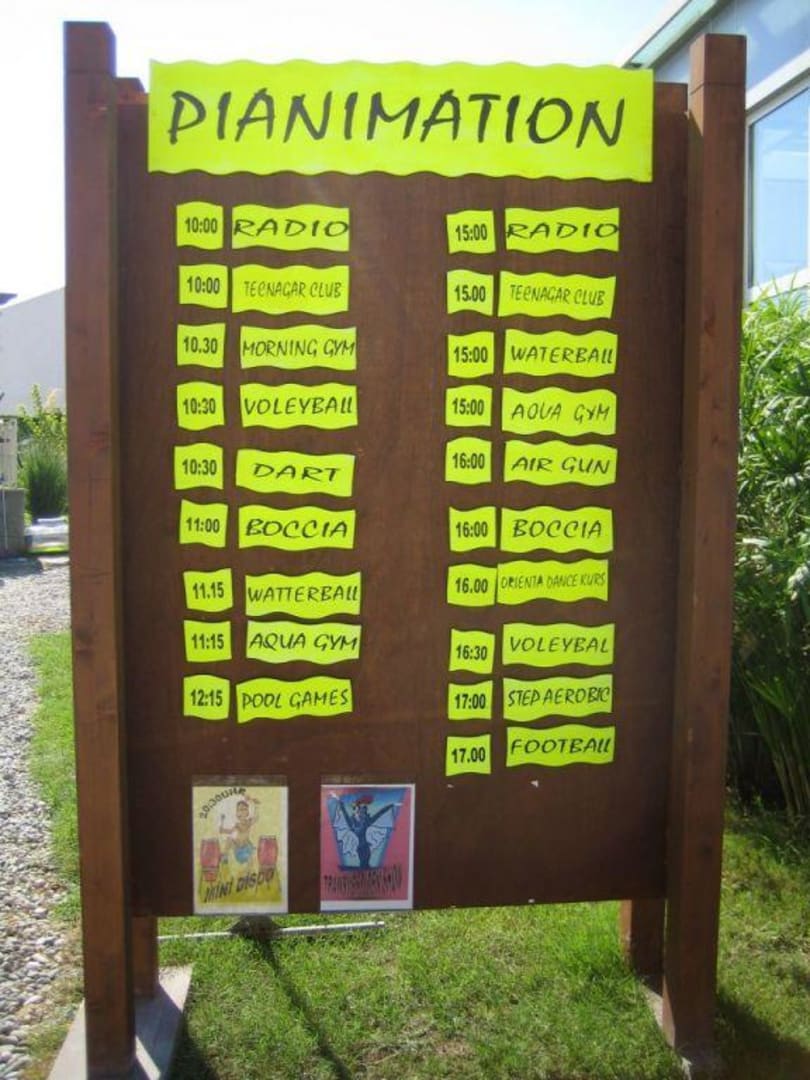 PIANIMATION
10:00 RADIO
10:00 TECNAGAR CLUB
10.30 MORNING GYM
10:30 VOLEYBALL
10:30 DART
11:00 BOCCIA
11.15 WATTERBALL
11:15 AQUA GYM
12:15 POOL GAMES
15:00 RADIO
15.00 TECNAGAR CLUB
15:00 WATERBALL
15:00 AQUA GYM
16:00 AIR GUN
16:00 BOCCIA
16.00 ORIENTA DANCE KURS
16:30 VOLEYBAL
17:00 STEP AEROBIC
17.00 FOOTBALL
20:30 UHR
MINI DISCO